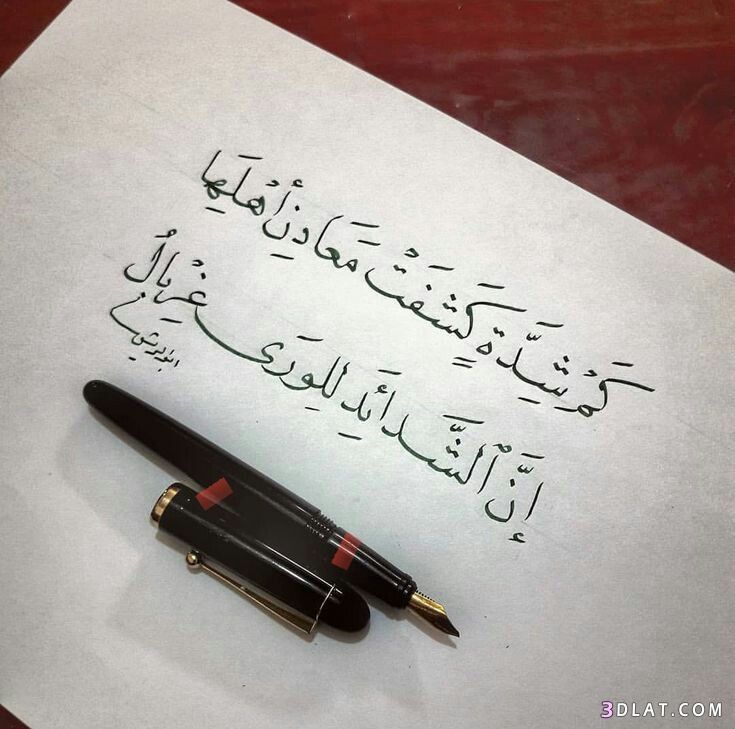 كَمْ شِدَّةٍ كَشَفَتْ مَعَادِنَ أَهْلِهَا
إِنَّ الشَّدَائِدَ لِلْوَرَى غِرْبَالُ
3DLAT.COM